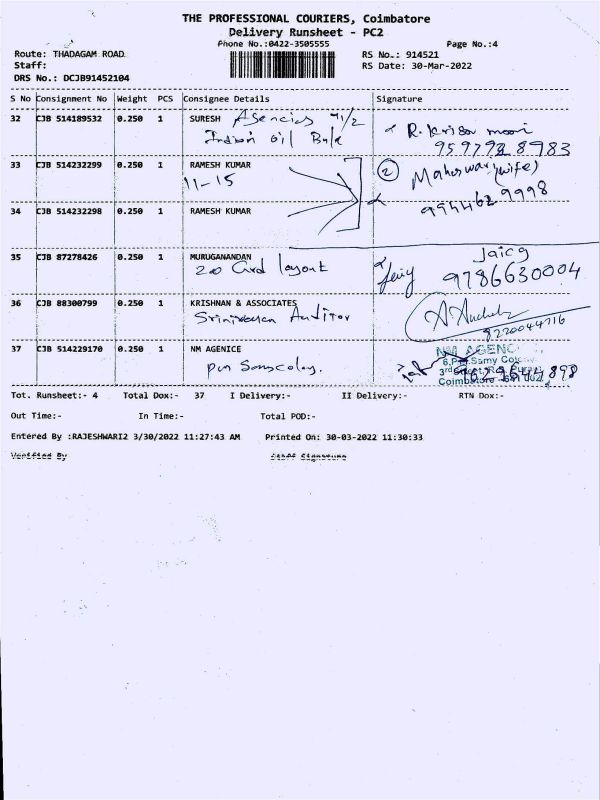 THE PROFESSIONAL COURIERS, Coimbatore
Delivery Runsheet - PC2
Phone No.:0422-3505555
Page No.:4
Route: THADAGAM ROAD
RS No.: 914521
Staff:
RS Date: 30-Mar-2022
DRS No.: DCJB91452104
S No Consignment No Weight PCS Consignee Details Signature
32 CJB 514189532 0.250 1 SURESH Agencies
Indian Oil
95 9792 8983
33 CJB 514232299 0.250 1 RAMESH KUMAR
11-15
2 Maheswari (wife)
994462 9998
34 CJB 514232298 0.250 1 RAMESH KUMAR
35 CJB 87278426 0.250 1 MURUGANANDAN
200 Card layout
9786630004
36 CJB 88300799 0.250 1 KRISHNAN & ASSOCIATES
Srinivasan Auditor
8220044716
37 CJB 514229170 0.250 1 NM AGENICE
NM AGENC
Tot. Runsheet:- 4 Total Dox:- 37 I Delivery:- II Delivery:- RTN Dox:-
Out Time:- In Time:- Total POD:-
Entered By :RAJESHWARI2 3/30/2022 11:27:43 AM Printed On: 30-03-2022 11:30:33
Verified By Staff Signature